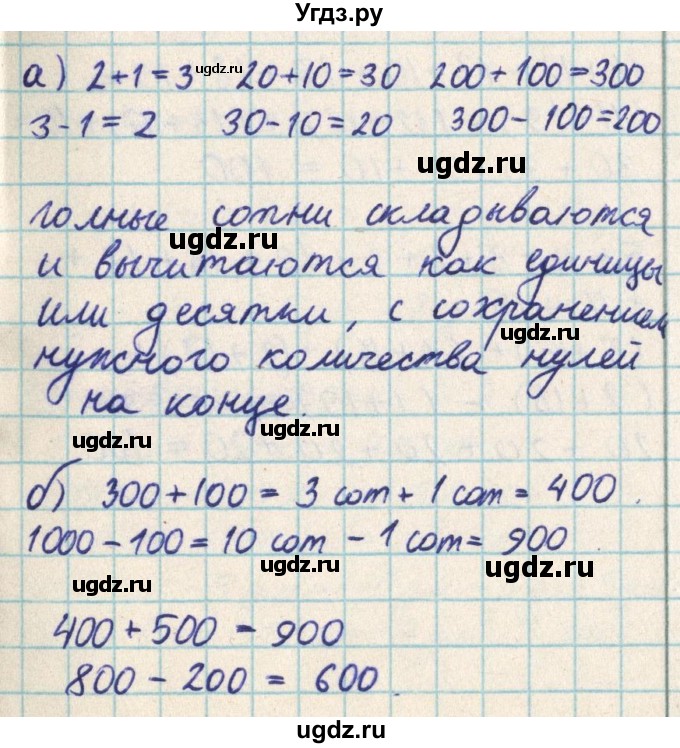 Угдз.ру
а) 2+1=3 ugdz.ru 20+10=30 200+100=300
3-1=2 30-10=20 300-100=200
ugdz.ru
голные сотни складываются
ugdz.ru
и вычитаются как единицы
или десятки, с сохранением
ugdz.ru
нужного количества нулей
на конце.
ugdz.ru ugdz.ru
б) 300+100= 3 сот+ 1 сот= 400
1000-100=10 сот - 1 сот= 900
ugdz.ru ugdz.ru ugdz.ru
400+500=900
800-200= 600
ugdz.ru